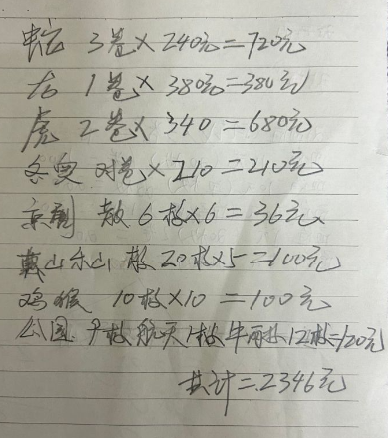 蛇 3卷×240元=720元
龙 1卷×380元=380元
虎 2卷×340=680元
冬奥 对卷×210=210元
京剧 散6枚×6=36元
山 散20枚×5=100元
鸡猴 10枚×10=100元
公园 9枚 航天1枚 牛两枚12枚=120元
共计=2346元